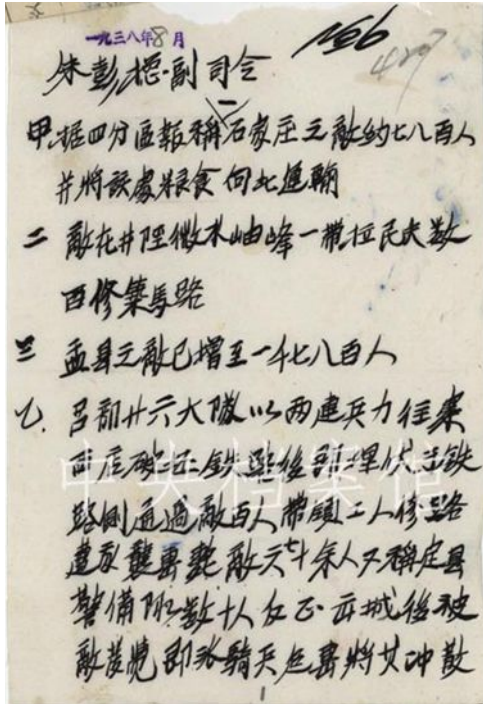 一九三八年8月
No6
429
朱彭總副司令
一
甲、据四分區報稱石家庄之敵約七八百人
并將該處粮食向北運輸
二 敵在井陘微水岫峰一帶拉民夫数
百修築馬路
三 盂县之敵已增至一千七八百人
乙. 吕部廿六大隊以兩連兵力往寨
西店破正铁路後頭埋伏于鉄
路側通過敵百人帶領工人修路
遭我襲擊斃敵六七十余人又稱定县
警備隊数十人反正出城後被
敵發覺即派騎兵追擊將其冲散
1
中央档案馆